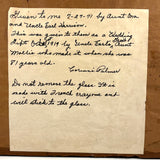 Given to me 2-27-91 by Aunt Em
and Uncle Earl Harrison.
This was given to them as a Wedding
Gift 1919 by Uncle Earl's Aunt
Mollie who made it when she was
81 years old.
Corinne Palmer
Do not remove the glass. It is
made with French crayons and
will stick to the glass.